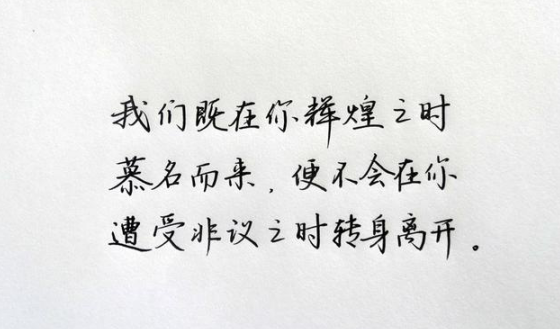 我们既在你辉煌之时
慕名而来，便不会在你
遭受非议之时转身离开。